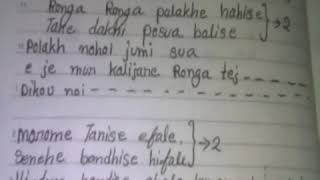 " Ronga Ronga palakhe hahise }→2
Take dakhi posua balise
Polakh nohol jumi sua
e je mur kalijare Ronga tej -----
Dikou noi ---------------
"Moromo Tanise efale, }→2
Senehe bandhise hifale